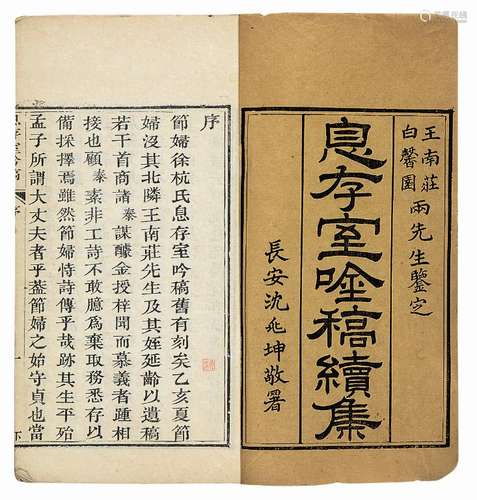 王南莊
白馨園
兩先生鑒定
息存室唫稿續集
長安沈兆坤敬署
序
節婦徐杭氏息存室吟稿舊有刻矣乙亥夏節
婦沒其北隣王南莊先生及其姪延齡以遺稿
若干首商諸秦謀醵金授梓聞而慕義者踵相
接也顧秦素非工詩不敢臆爲棄取務悉存以
備採擇焉雖然節婦恃詩傳乎哉跡其生平殆
孟子所謂大丈夫者乎葢節婦之始守貞也當